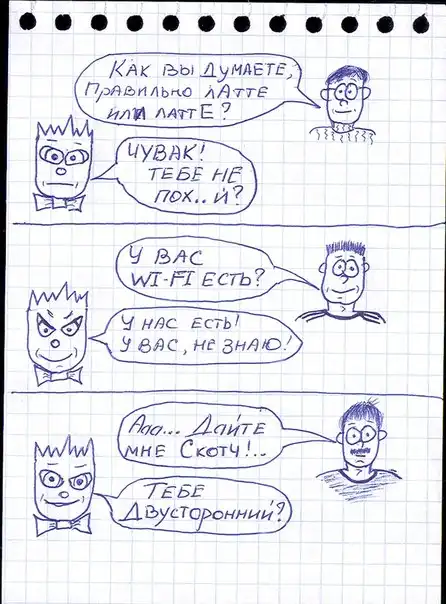 КАК ВЫ ДУМАЕТЕ,
ПРАВИЛЬНО ЛАТТЕ
ИЛИ ЛАТТЕ?
ЧУВАК!
ТЕБЕ НЕ
ПОХ..Й?
У ВАС
WI-FI ЕСТЬ?
У НАС ЕСТЬ!
У ВАС, НЕ ЗНАЮ!
Ааа... ДАЙТЕ
МНЕ СКОТЧ!..
ТЕБЕ
ДВУСТОРОННИЙ?